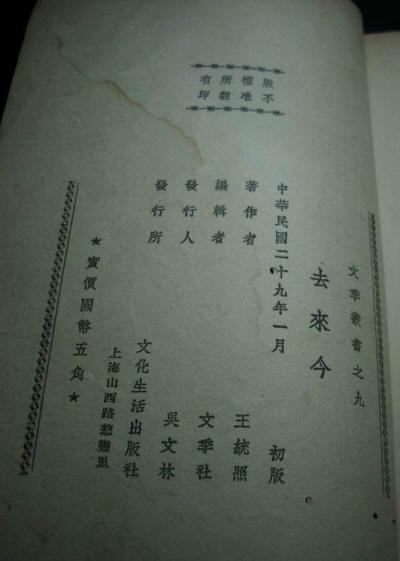 版權所有
不准翻印
文季叢書之九
去來今
中華民國二十九年一月 初版
著作者 王統照
編輯者 文季社
發行人 吳文林
發行所 文化生活出版社
上海山西路慈豐里
★實價國幣五角★